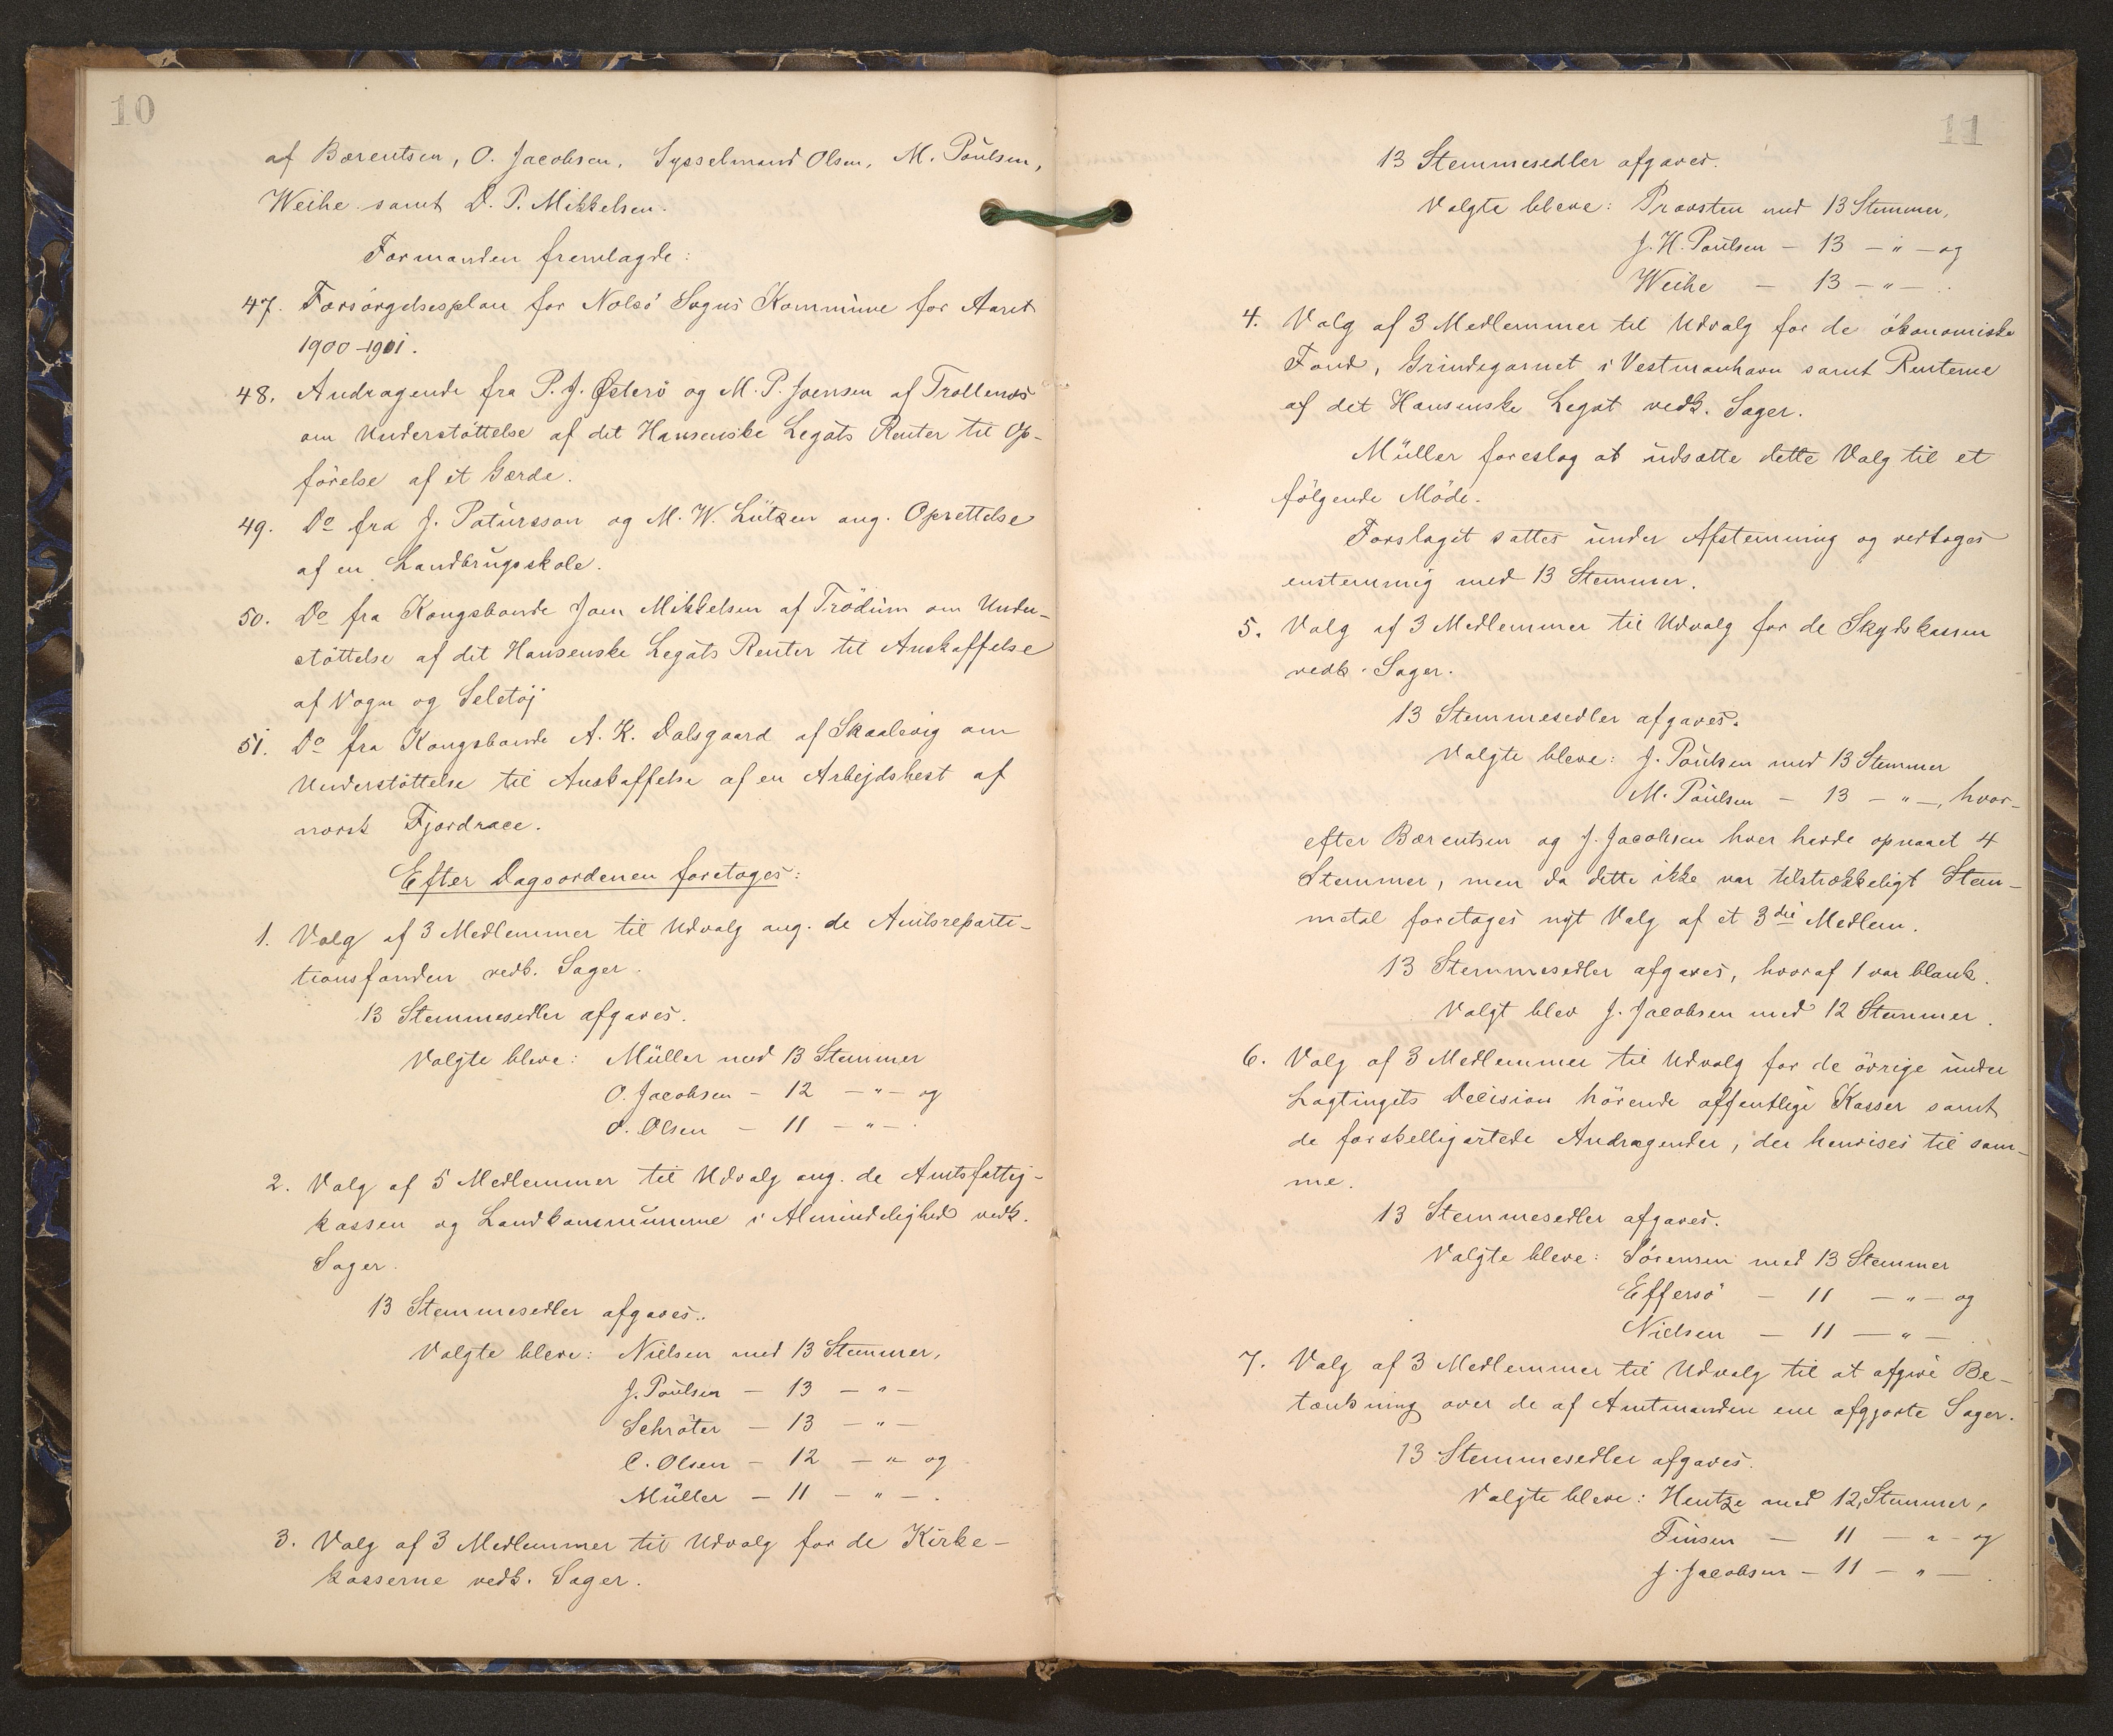 10
af Bærentsen, O. Jacobsen, Sysselmand Olsen, M. Poulsen,
Weihe samt D. P. Mikkelsen.
Formanden fremlagde:
47. Forsörgelsesplan for Nolsö Sogns Kommune for Aaret
1900-1901.
48. Andragende fra P. J. Østerö og M. P. Joensen af Trollenæs
om Understöttelse af det Hansenske Legats Renter til Op-
förelse af et Gærde.
49. Do fra J. Patursson og M. W. Lützen ang. Oprettelse
af en Landbrugsskole.
50. Do fra Kongsbonde Joen Mikkelsen af Trödum om Under-
stöttelse af det Hansenske Legats Renter til Anskaffelse
af Vogn og Seletöj
51. Do fra Kongsbonde A. K. Dalsgaard af Skaalevig om
Understöttelse til Anskaffelse af en Arbejdshest af
norsk Fjordrace.
Efter Dagsordenen foretoges:
1. Valg af 3 Medlemmer til Udvalg ang. de Amtsreparti-
tionsfonden vedk. Sager.
13 Stemmesedler afgaves.
Valgte bleve: Müller med 13 Stemmer
O. Jacobsen - 12 - " - og
O. Olsen - 11 - " - .
2. Valg af 5 Medlemmer til Udvalg ang. de Amtsfattig-
kassen og Landkommunerne i Almindelighed vedk.
Sager.
13 Stemmesedler afgaves..
Valgte bleve: Nielsen med 13 Stemmer,
J. Poulsen - 13 - " -
Schröter - 13 - " -
C. Olsen - 12 - " - og
Müller - 11 - " - .
3. Valg af 3 Medlemmer til Udvalg for de Kirke-
kasserne vedk. Sager.
11
13 Stemmesedler afgaves.
Valgte bleve: Provsten med 13 Stemmer,
J. H. Poulsen - 13 - " - og
Weihe - 13 - " - .
4. Valg af 3 Medlemmer til Udvalg for de ökonomiske
Fond, Grindegarnet i Vestmanhavn samt Renterne
af det Hansenske Legat vedk. Sager.
Müller foreslog at udsætte dette Valg til et
fölgende Möde.
Forslaget sattes under Afstemning og vedtoges
enstemmig med 13 Stemmer.
5. Valg af 3 Medlemmer til Udvalg for de Skydskassen
vedk. Sager.
13 Stemmesedler afgaves.
Valgte bleve: J. Poulsen med 13 Stemmer
M. Poulsen - 13 - " -, hvor-
efter Bærentsen og J. Jacobsen hver havde opnaaet 4
Stemmer, men da dette ikke var tilstrækkeligt Stem-
metal foretoges nyt Valg af et 3die Medlem.
13 Stemmesedler afgaves, hvoraf 1 var blank.
Valgt blev J. Jacobsen med 12 Stemmer.
6. Valg af 3 Medlemmer til Udvalg for de övrige under
Lagtingets Decision hörende offentlige Kasser samt
de forskelligartede Andragender, der henvises til sam-
me.
13 Stemmesedler afgaves.
Valgte bleve: Sörensen med 13 Stemmer
Effersö - 11 - " - og
Nielsen - 11 - " - .
7. Valg af 3 Medlemmer til Udvalg til at afgive Be-
tænkning over de af Amtmanden ene afgjorte Sager.
13 Stemmesedler afgaves.
Valgte bleve: Hentze med 12 Stemmer,
Finsen - 11 - " - og
J. Jacobsen - 11 - " - .